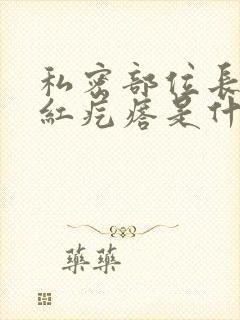 私密部位長
紅疙瘩是什
藥藥